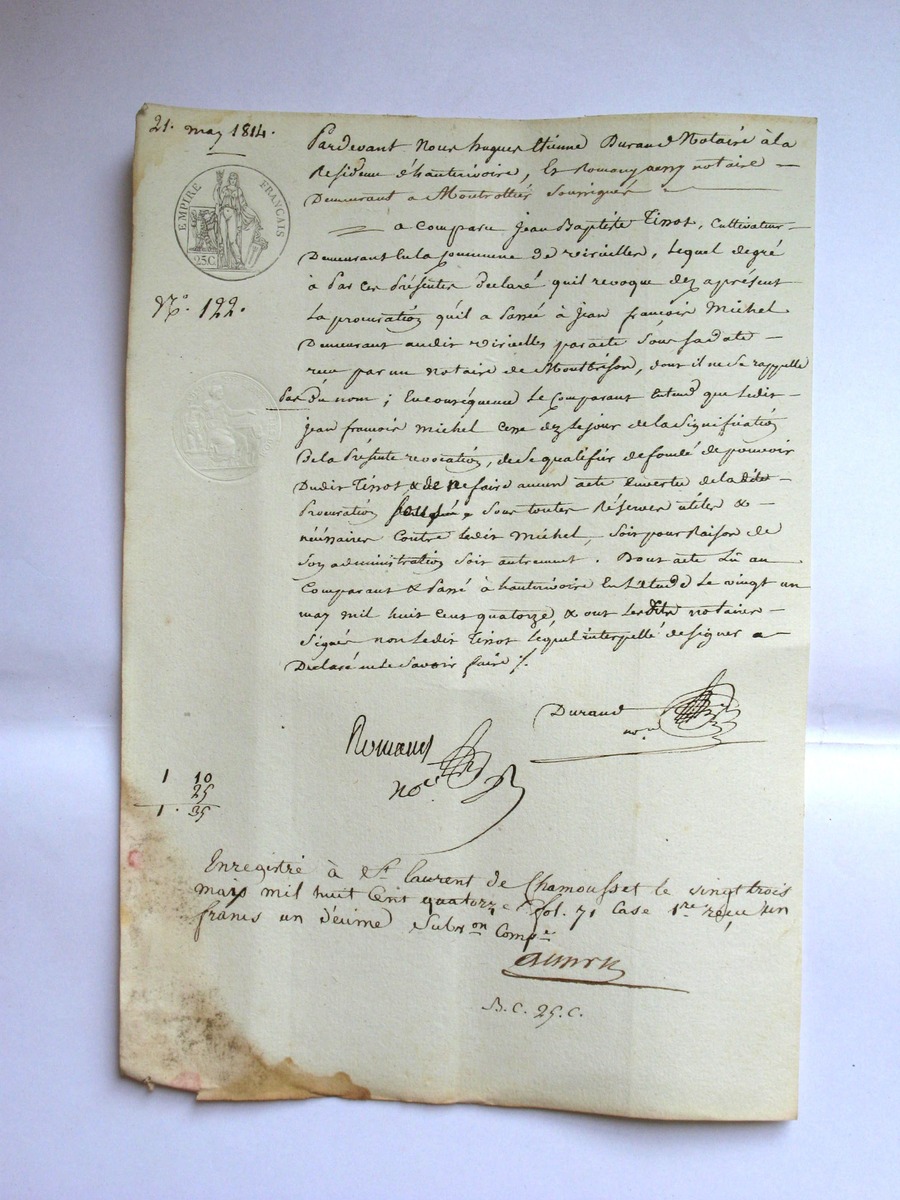 21. may 1814.
EMPIRE FRANÇAIS
25C
N.o 122.
Pardevant Nous hugues Etienne Durand Notaire à la
Residence d'hauterivoire, Et Romany notaire
Demeurant a Montrottier Soussignés
a comparu Jean Baptiste Tissot, Cultivateur
Demeurant En la Commune de virvielles, Lequel degré
à Par Ces Présentes déclaré quil revoque dez aprésent
La procuration quil a Passé à jean françois Michel
Demeurant audit virvielles par acte Sous Sa date
reçu par un notaire de Montbrison, dont il ne Se rappelle
Pas du nom ; En conséquence Le Comparant Entend que Ledit
jean françois Michel Cesse dez Le jour de la Signification
De la Présente revocation, de Se qualifier de fondé de pouvoir
Dudit Tissot & de ne faire aucun acte En vertu de la dite
Procuration Sous toutes Réserves utiles &
nécessaires Contre Ledit Michel, Soit pour Raison de
Son administration Soit autrement. Dont acte Lû au
Comparant & Passé à hauterivoire En L'étude Le vingt un
may mil huit Cent quatorze, & ont Les dits notaires
Signés non Ledit Tissot Lequel interpellé de signer a
Déclaré ne Le Savoir faire ./.
Durand
no.re
Romany
no.re
1 10
25
1. 35
Enregistré à St. Laurent de Chamousset le vingt trois
mais mil huit Cent quatorze fol. 71 Case 1.re reçu un
francs un décime Subv.on Comp.e
B.C. 25.C.